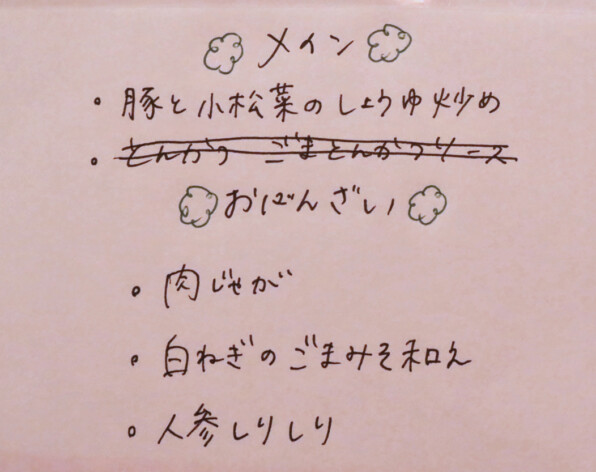 メイン
• 豚と小松菜のしょうゆ炒め
• とんかつ ごまとんかつソース
おばんざい
• 肉じゃが
• 白ねぎのごまみそ和え
• 人参しりしり